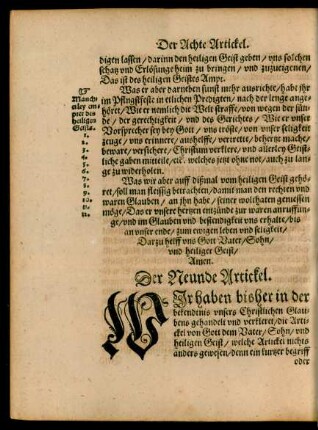 Der Achte Artickel.
digen lassen / darinn den heiligen Geist geben / vns solchen
schatz vnd Erlösunge heim zu bringen / vnd zuzueigenen /
Das ist des heiligen Geistes Ampt.
Was er aber darneben sunst mehr ausrichte / habt jhr
im Pfingstfeste in etlichen Predigten / nach der lenge ange-
höret / Wie er nemlich die Welt straffe / von wegen der sün-
de / der gerechtigkeit / vnd des Gerichts / Wie er vnser
Vorsprecher sey bey Gott / vns tröste / von vnser seligkeit
zeuge / vns erinnere / aushelffe / vertrette / behertzt mache /
beware / versichere / Christum verklere / vnd allerley Geist-
liche gaben mitteile / etc. welches jetzt ohne not / auch zu lan-
ge zu widerholen.
Manch-
des
heiligen
Geists.
1.
2.
3.
4.
5.
6.
7.
8.
9.
10.
11.
12.
Was wir aber auff dißmal vom heiligen Geist gehö-
ret / soll man fleissig betrachten / damit man den rechten vnd
waren Glauben / an jhn habe / seiner wolthaten geniessen
möge / Das er vnsere hertzen entzünde zur waren anruffun-
ge / vnd im Glauben vnd bestendigkeit vns erhalte / bis
an vnser ende / zum ewigen leben vnd seligkeit /
Darzu helff vns Gott Vater / Sohn /
vnd heiliger Geist /
Amen.
Der Neunde Artickel.
WIr haben bisher in der
bekendtnis vnsers Christlichen Glau-
bens gehandelt vnd verkleret / die Arti-
ckel von Gott dem Vater / Sohn / vnd
heiligen Geist / welche Artickel nichts
anders gewesen / denn ein kurtzer begriff
oder